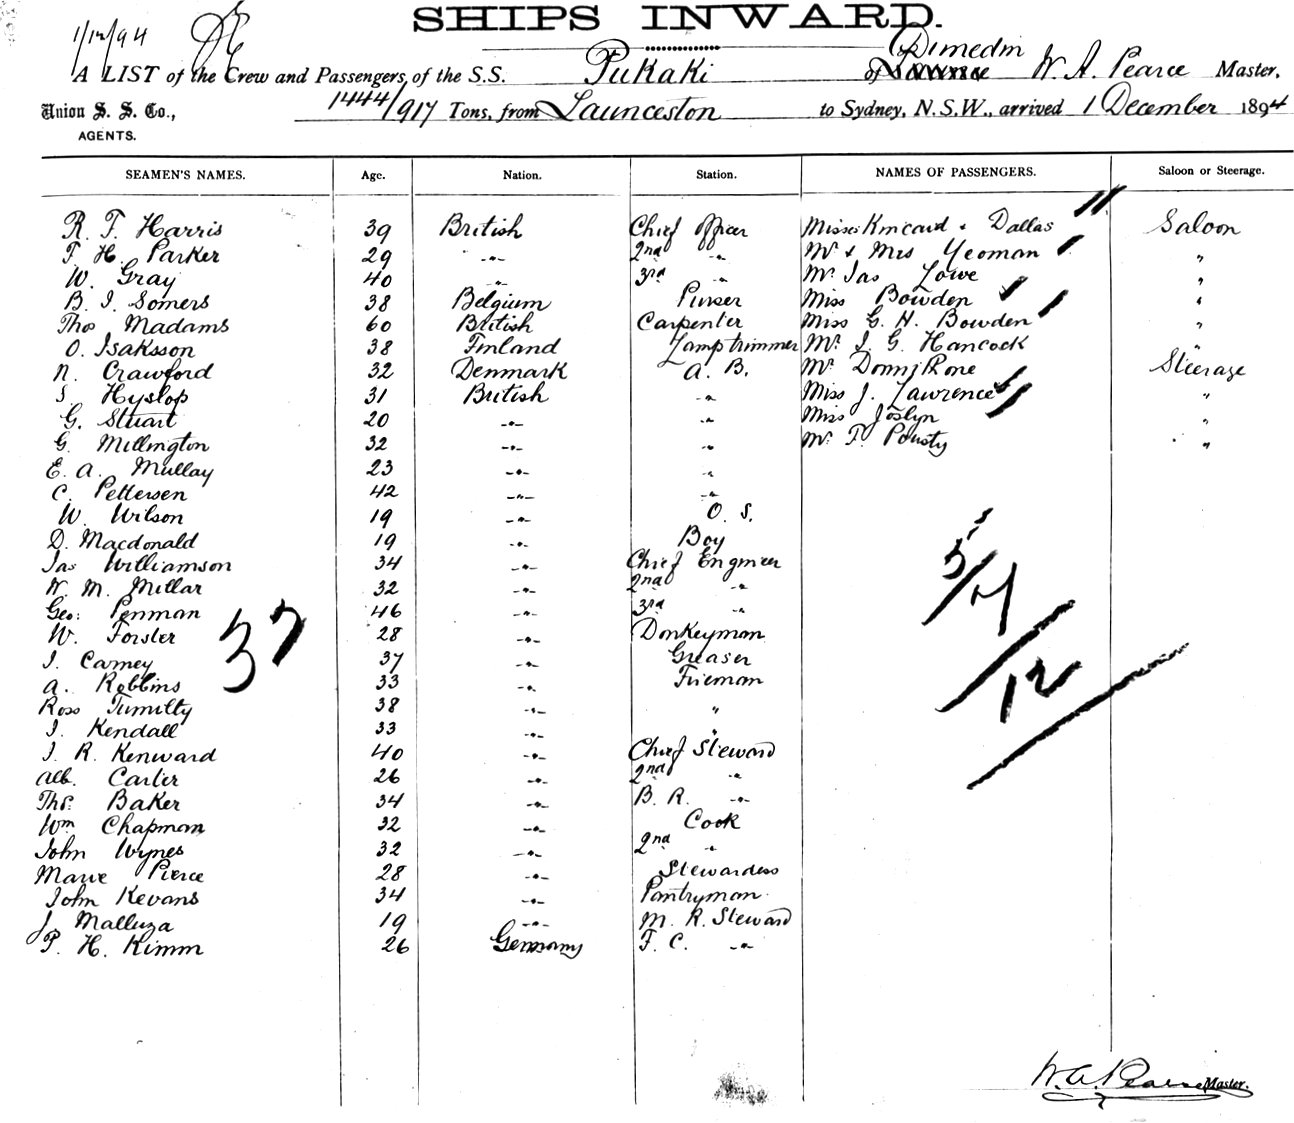 SHIPS INWARD.
1/12/94
A LIST of the Crew and Passengers, of the S.S. Pukaki of Dunedin W. A. Pearce Master,
Union S. S. Co., 1444/917 Tons, from Launceston to Sydney, N.S.W., arrived 1 December 1894
AGENTS.
SEAMEN'S NAMES. Age. Nation. Station. NAMES OF PASSENGERS. Saloon or Steerage.
R. T. Harris 39 British Chief Officer Misses Kincard & Dallas Saloon
T. H. Parker 29 -"- 2nd -"- Mr & Mrs Yeoman "
W. Gray 40 -"- 3rd -"- Mr Jas Lowe "
B. I. Somers 38 Belgium Purser Miss Bowden "
Thos Madams 60 British Carpenter Miss G. H. Bowden "
O. Isaksson 38 Finland Lamptrimmer Mr I. G. Hancock "
N. Crawford 32 Denmark A. B. Mr Steerage
S. Hyslop 31 British -"- Miss J. Lawrence "
G. Stuart 20 -"- -"- Miss Joslyn "
G. Millington 32 -"- -"- Mr T. Pousty "
E. A. Mullay 23 -"- -"-
C. Pettersen 42 -"- -"-
W. Wilson 19 -"- O. S.
D. Macdonald 19 -"- Boy
Jas Williamson 34 -"- Chief Engineer
W. M. Millar 32 -"- 2nd -"-
Geo: Penman 46 -"- 3rd -"-
W. Forster 28 -"- Donkeyman
J. Carney 37 -"- Greaser
A. Robbins 33 -"- Fireman
Ross Tumilty 38 -"- "
J. Kendall 33 -"- "
J. R. Kenward 40 -"- Chief Steward
Alb. Carter 26 -"- 2nd -"-
Thos. Baker 34 -"- B. R. -"-
Wm Chapman 32 -"- Cook
John Wynes 32 -"- 2nd -"-
Marie Pierce 28 -"- Stewardess
John Kevans 34 -"- Pantryman
J. Malluza 19 -"- M. R. Steward
P. H. Kimm 26 Germany F. C. -"-
37
5/7/12
W. A. Pearce Master.